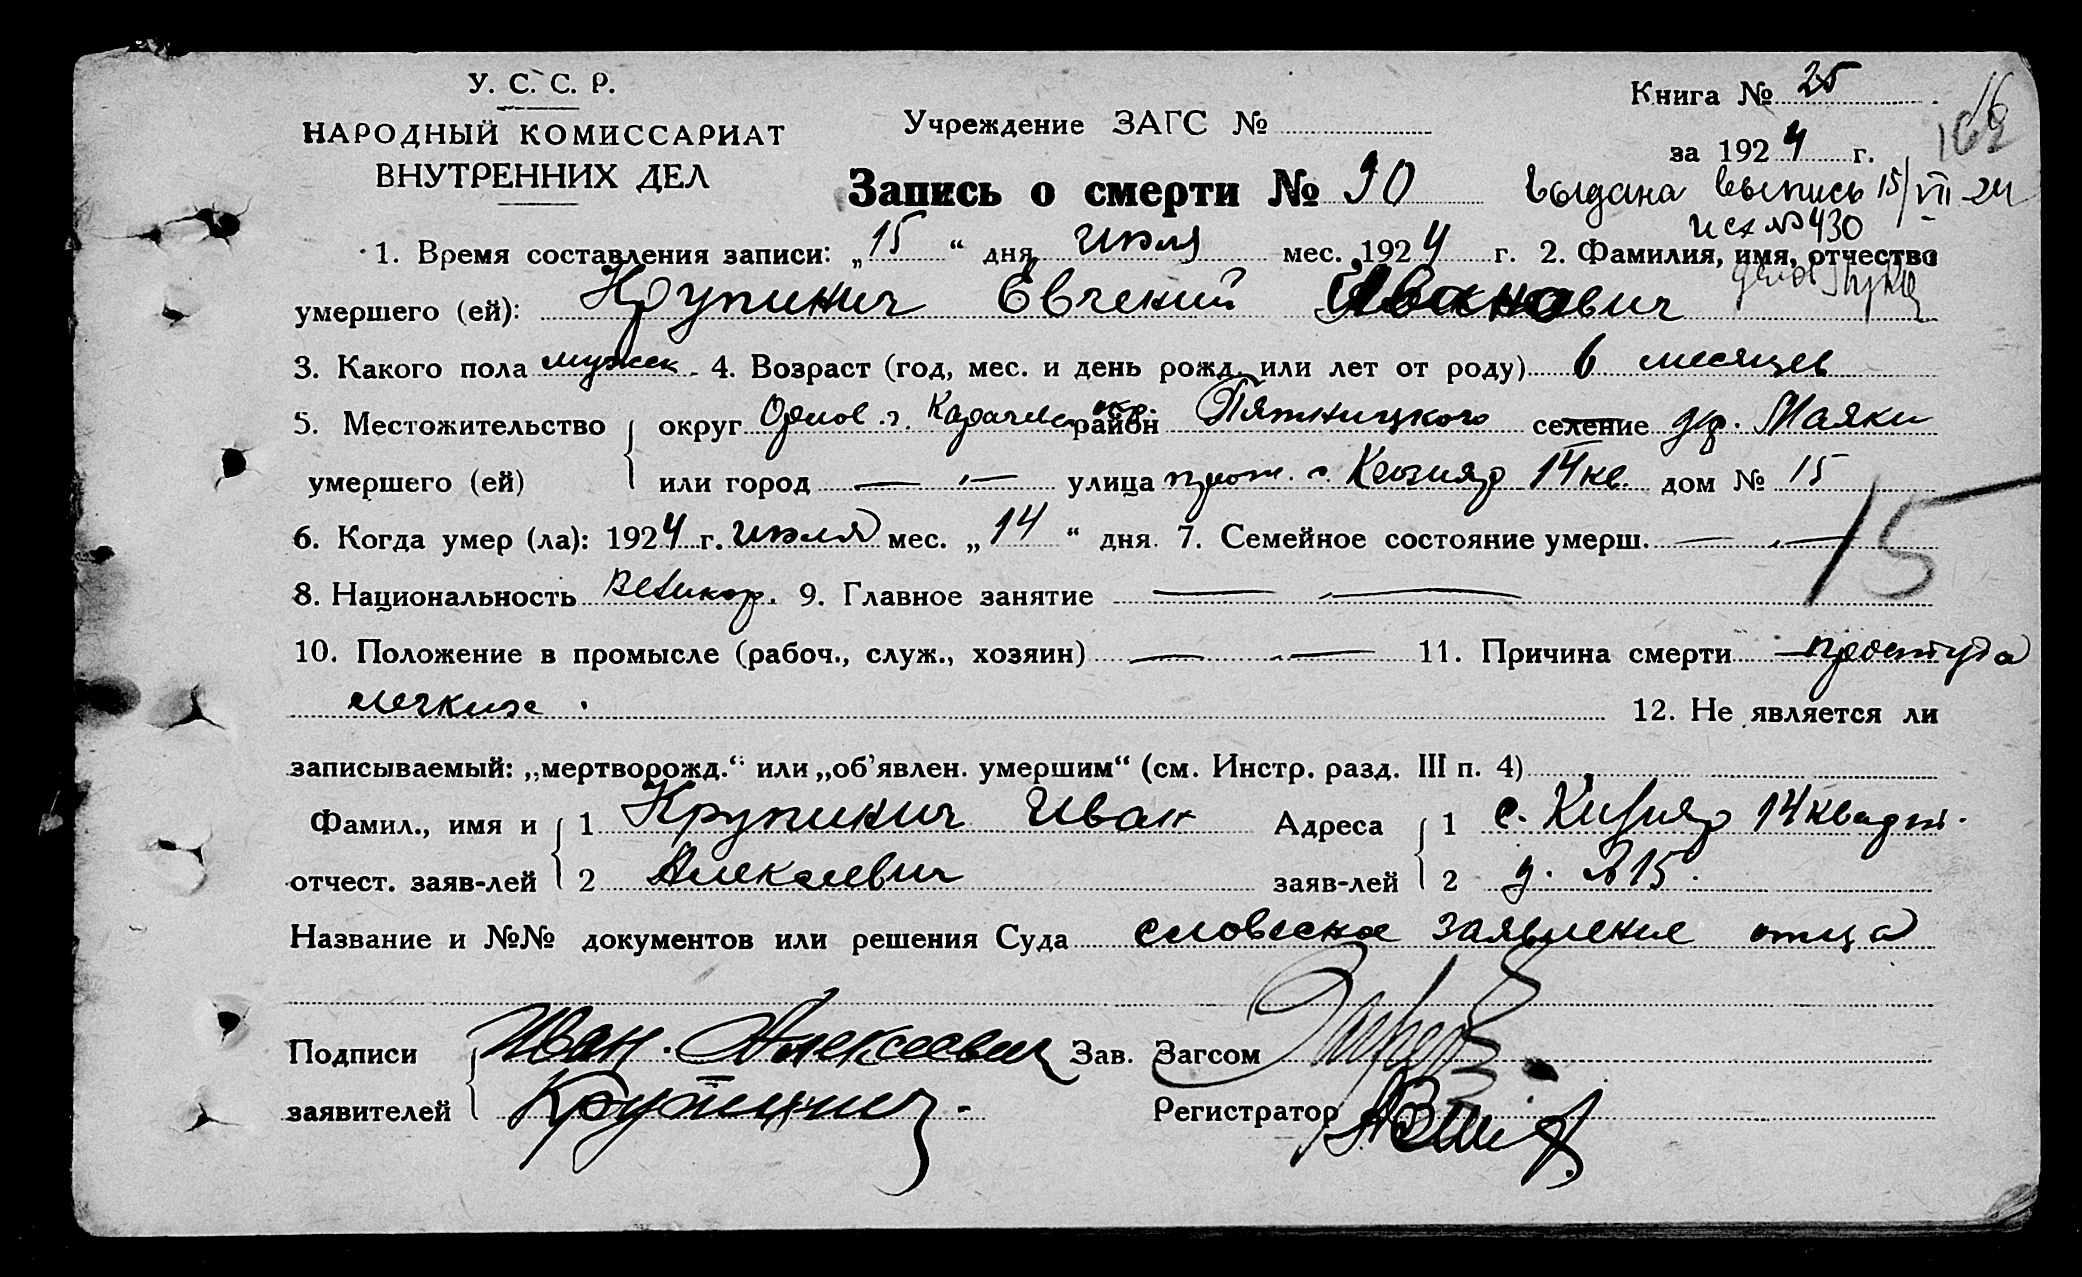 У. С. С. Р.
НАРОДНЫЙ КОМИССАРИАТ
ВНУТРЕННИХ ДЕЛ
Учреждение ЗАГС №
Книга № 25
за 1924 г.
Запись о смерти № 90
выдана выпись 15/VII-24
исх № 430
1. Время составления записи: „15“ дня июля мес. 1924 г. 2. Фамилия, имя, отчество
умершего (ей): Крупинич Евгений Иванович
3. Какого пола мужск. 4. Возраст (год, мес. и день рожд. или лет от роду) 6 месяцев
5. Местожительство округ Орлов. г. район Пятницкого селение др. Маяки
умершего (ей) или город — „ — улица 14 кв. дом № 15
6. Когда умер (ла): 1924 г. июля мес. „14“ дня 7. Семейное состояние умерш. — „ —
15
8. Национальность Великор. 9. Главное занятие — „ —
10. Положение в промысле (рабоч., служ., хозяин) — „ — 11. Причина смерти простуда
легких. 12. Не является ли
записываемый: „мертворожд.“ или „об’явлен. умершим“ (см. Инстр. разд. III п. 4)
Фамил., имя и 1 Крупинич Иван Адреса 1 с. 14 кварт.
отчест. заяв-лей 2 Алексеевич заяв-лей 2 д. № 15.
Название и №№ документов или решения Суда словесное заявление отца
Подписи Иван. Алексеевич Зав. Загсом
заявителей Крупинич. Регистратор